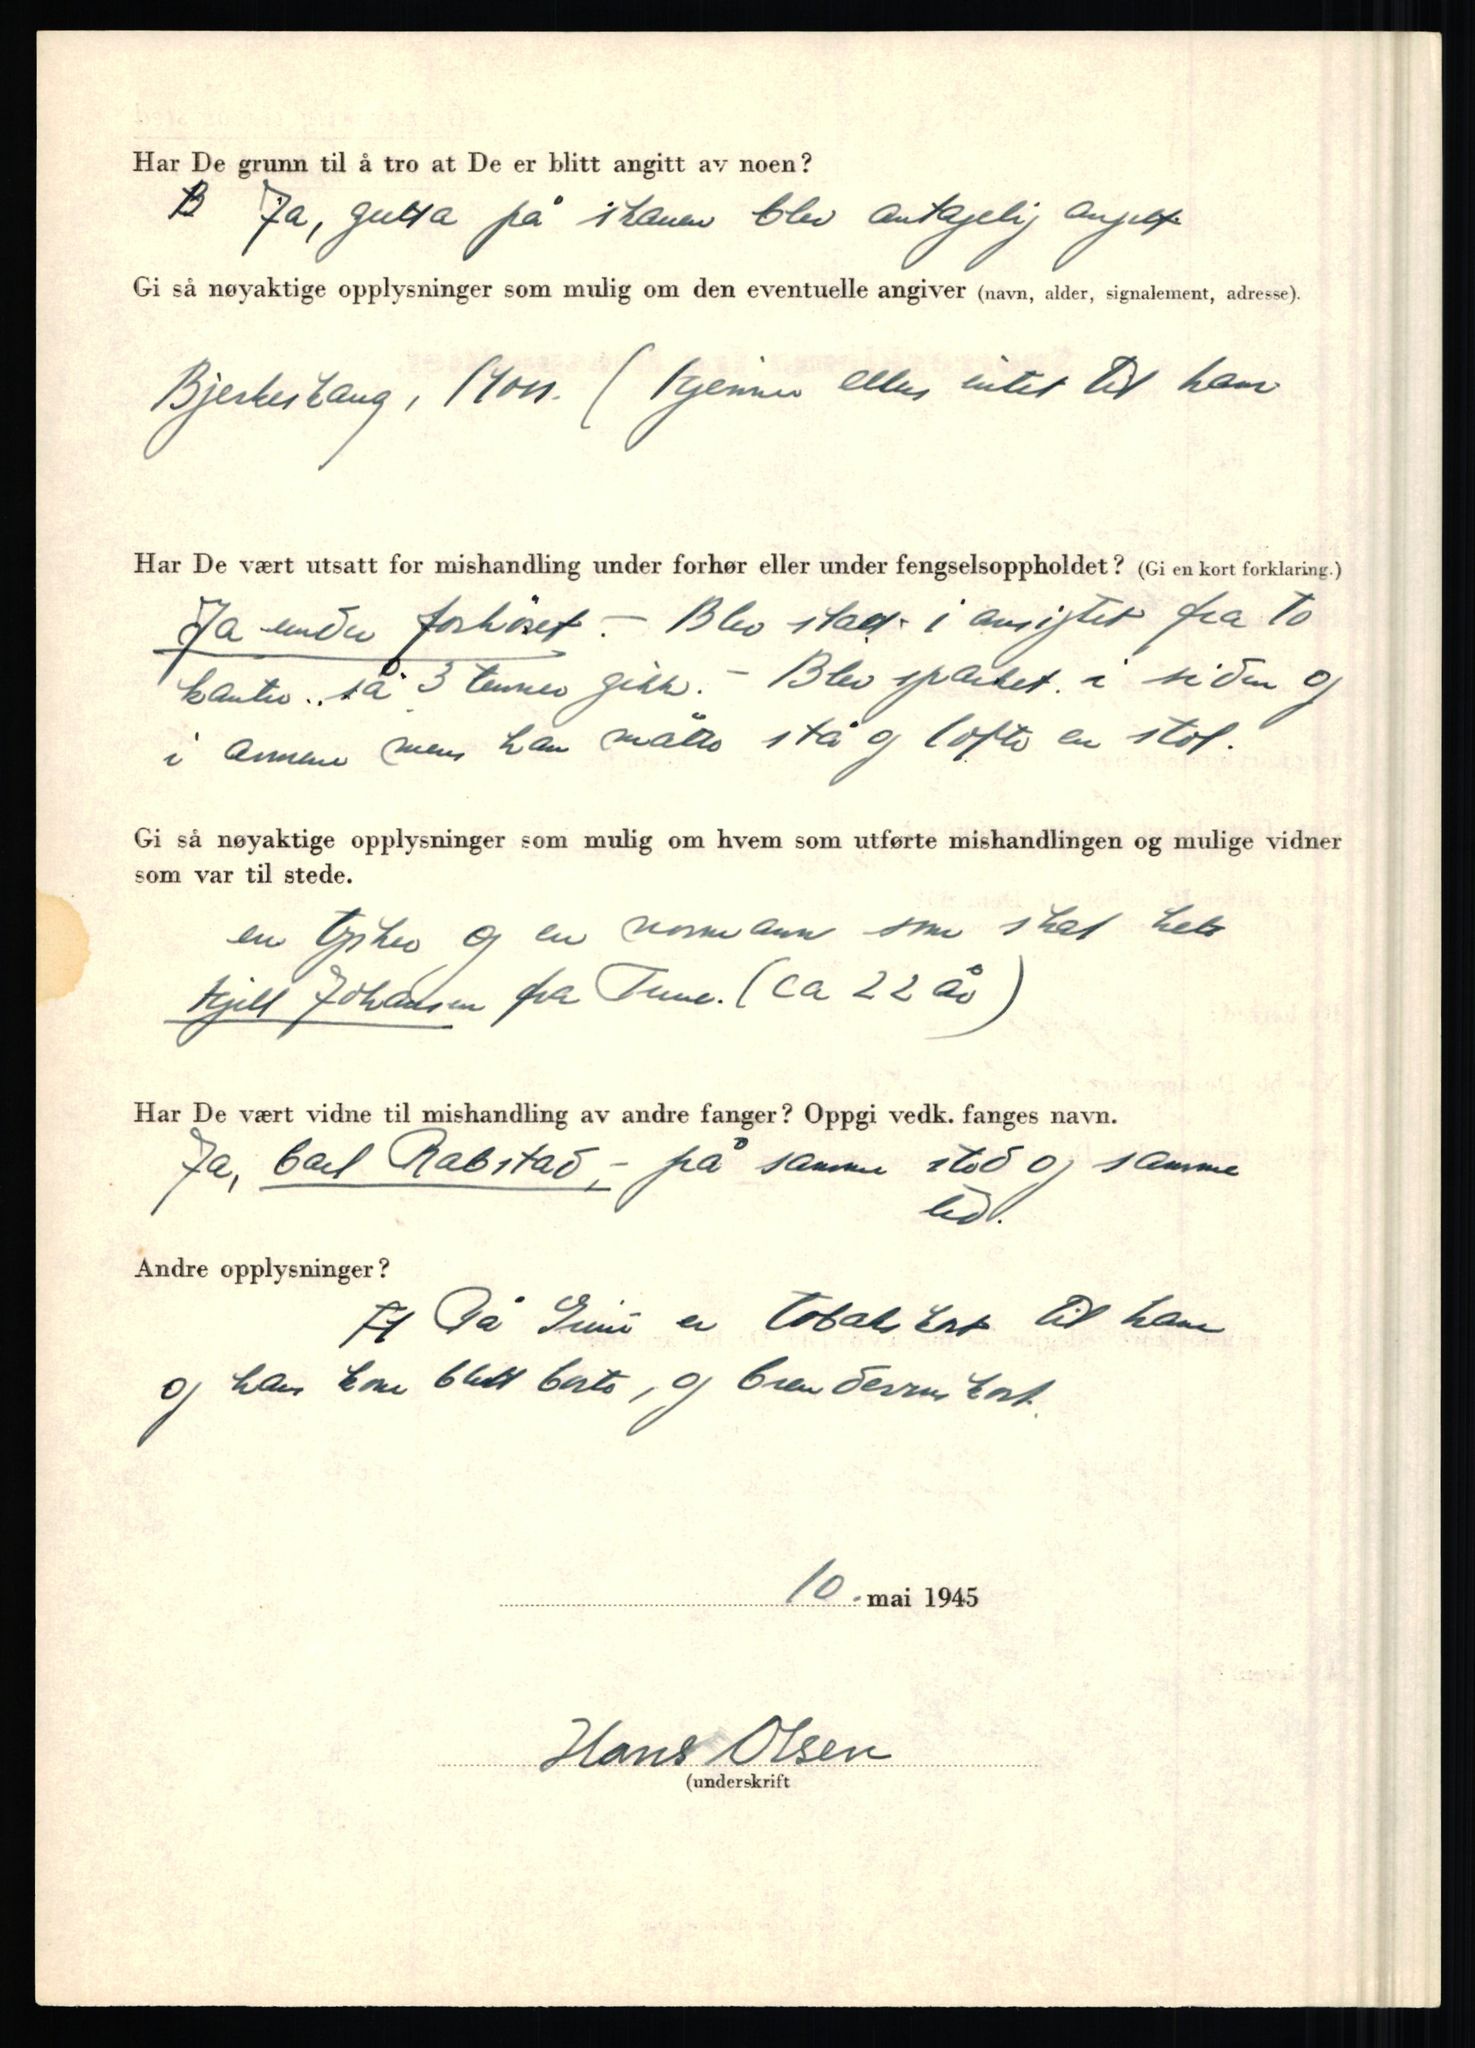 Har De grunn til å tro at De er blitt angitt av noen?
Ja, gutta på skauen blev antagelig angitt
Gi så nøyaktige opplysninger som mulig om den eventuelle angiver (navn, alder, signalement, adresse).
Bjerkeskaug, Moss. (kjenner ellers intet til ham
Har De vært utsatt for mishandling under forhør eller under fengselsoppholdet? (Gi en kort forklaring.)
Ja under forhöret. – Blev slått i ansigtet fra to
kanter.. så 3 tenner gikk. – Blev sparket i siden og
i armene mens han måtte stå og löfte en stol.
Gi så nøyaktige opplysninger som mulig om hvem som utførte mishandlingen og mulige vidner
som var til stede.
en tysker og en normann som skal hete
Kjell Johansen fra Tune. (ca 22 år)
Har De vært vidne til mishandling av andre fanger? Oppgi vedk. fanges navn.
Ja, Carl Rabstad, – på samme sted og samme
tid.
Andre opplysninger?
På Grini er tobakskort til ham
og hans kone blitt borte, og brendevinskort.
10. mai 1945
Hans Olsen
(underskrift